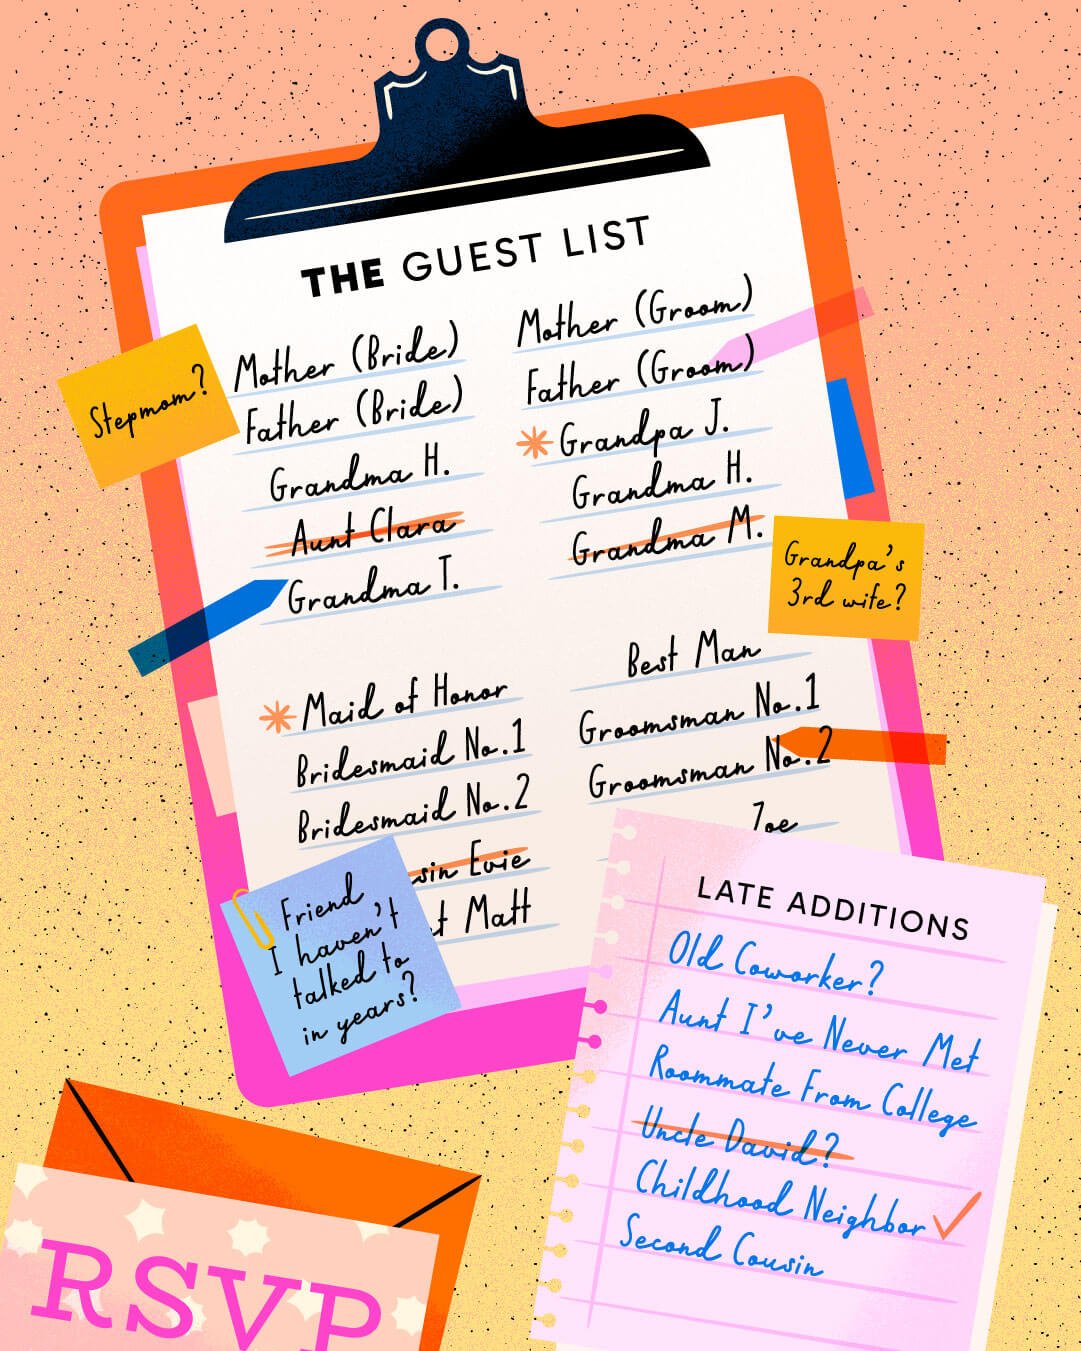 THE GUEST LIST
Mother (Bride)
Father (Bride)
Grandma H.
Aunt Clara
Grandma T.
Mother (Groom)
Father (Groom)
Grandpa J.
Grandma H.
Grandma M.
Stepmom?
Grandpa's
3rd wife?
Maid of Honor
Bridesmaid No.1
Bridesmaid No.2
Evie
Matt
Best Man
Groomsman No.1
Groomsman No.2
Zoe
Friend
I haven't
talked to
in years?
LATE ADDITIONS
Old Coworker?
Aunt I've Never Met
Roommate From College
Uncle David?
Childhood Neighbor
Second Cousin
RSVP